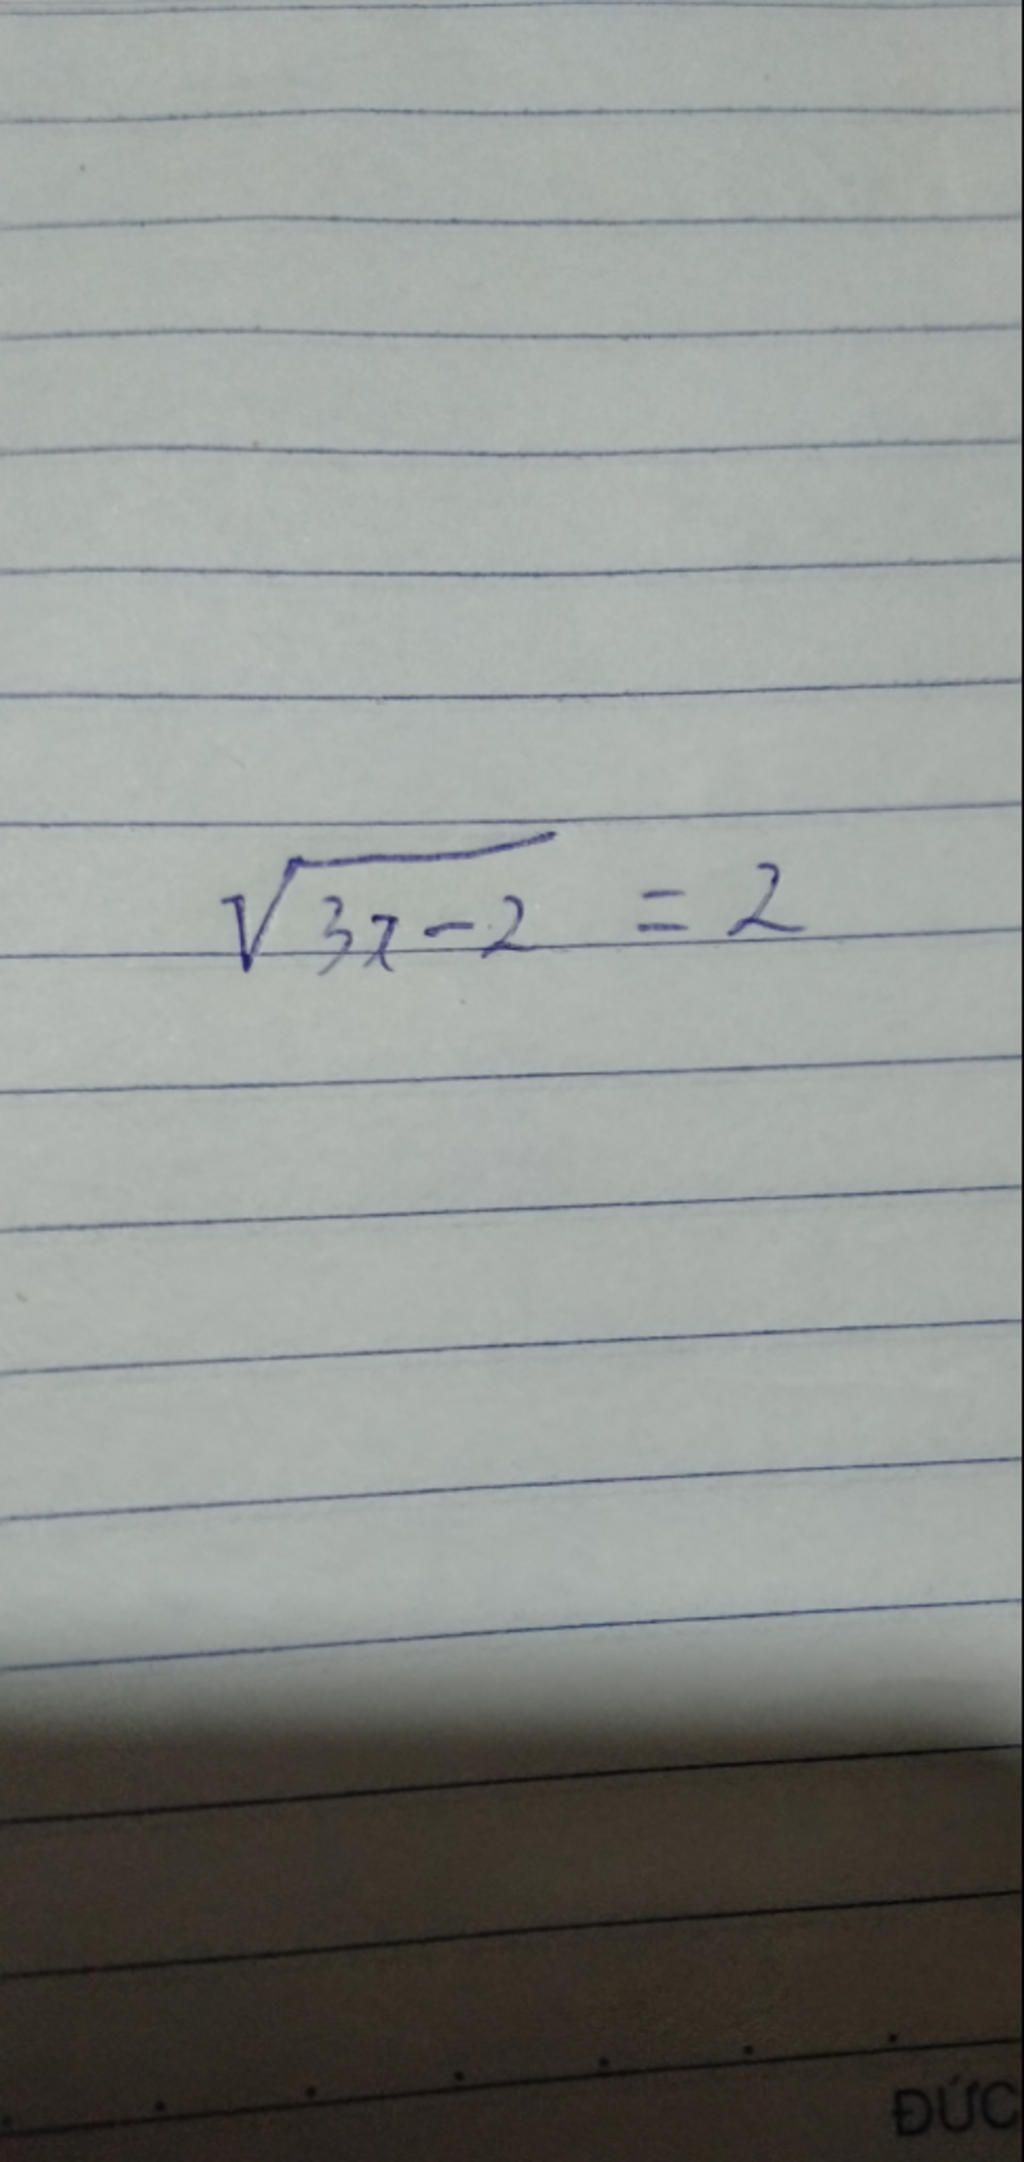 √3x-2 = 2
ĐỨC